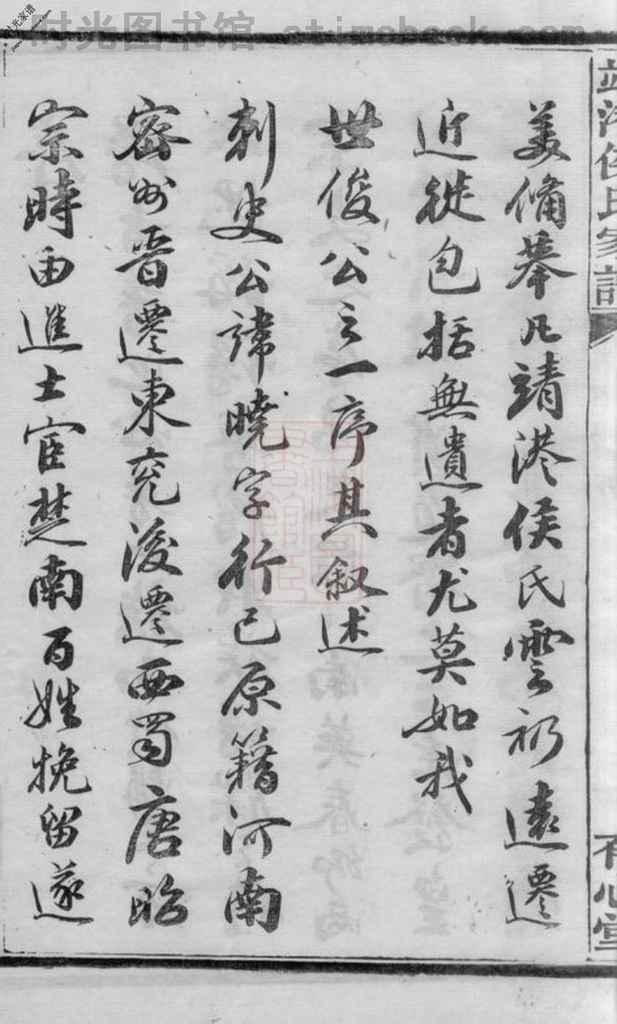 时光图书馆 etimebook.com
靖港侯氏家譜
美備舉凡靖港侯氏雲礽遠遷
近徙包括無遺者尤莫如我
世俊公之一序其叙述
刺史公諱曉字行己原籍河南
密州晉遷東兖後遷西蜀唐昭
宗時由進士宦楚南百姓挽留遂